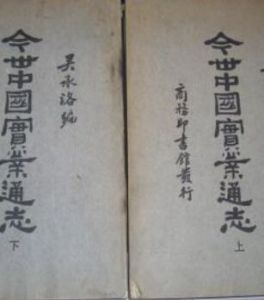 今世中國實業通志
上
商務印書館發行
吳承洛編
今世中國實業通志
下